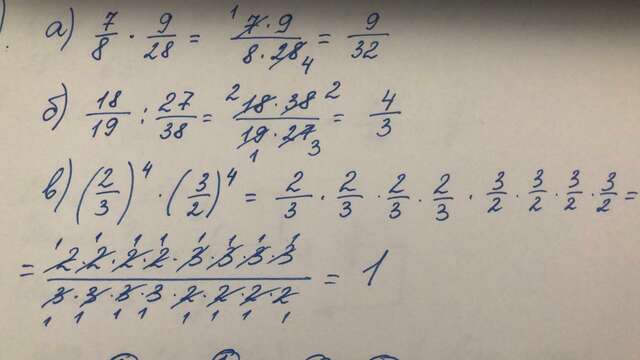 а) 7/8 · 9/28 = (7 · 9)/(8 · 28) = 9/32
б) 18/19 : 27/38 = (18 · 38)/(19 · 27) = 4/3
в) (2/3)^4 · (3/2)^4 = 2/3 · 2/3 · 2/3 · 2/3 · 3/2 · 3/2 · 3/2 · 3/2 =
= (2·2·2·2·3·3·3·3)/(3·3·3·3·2·2·2·2) = 1